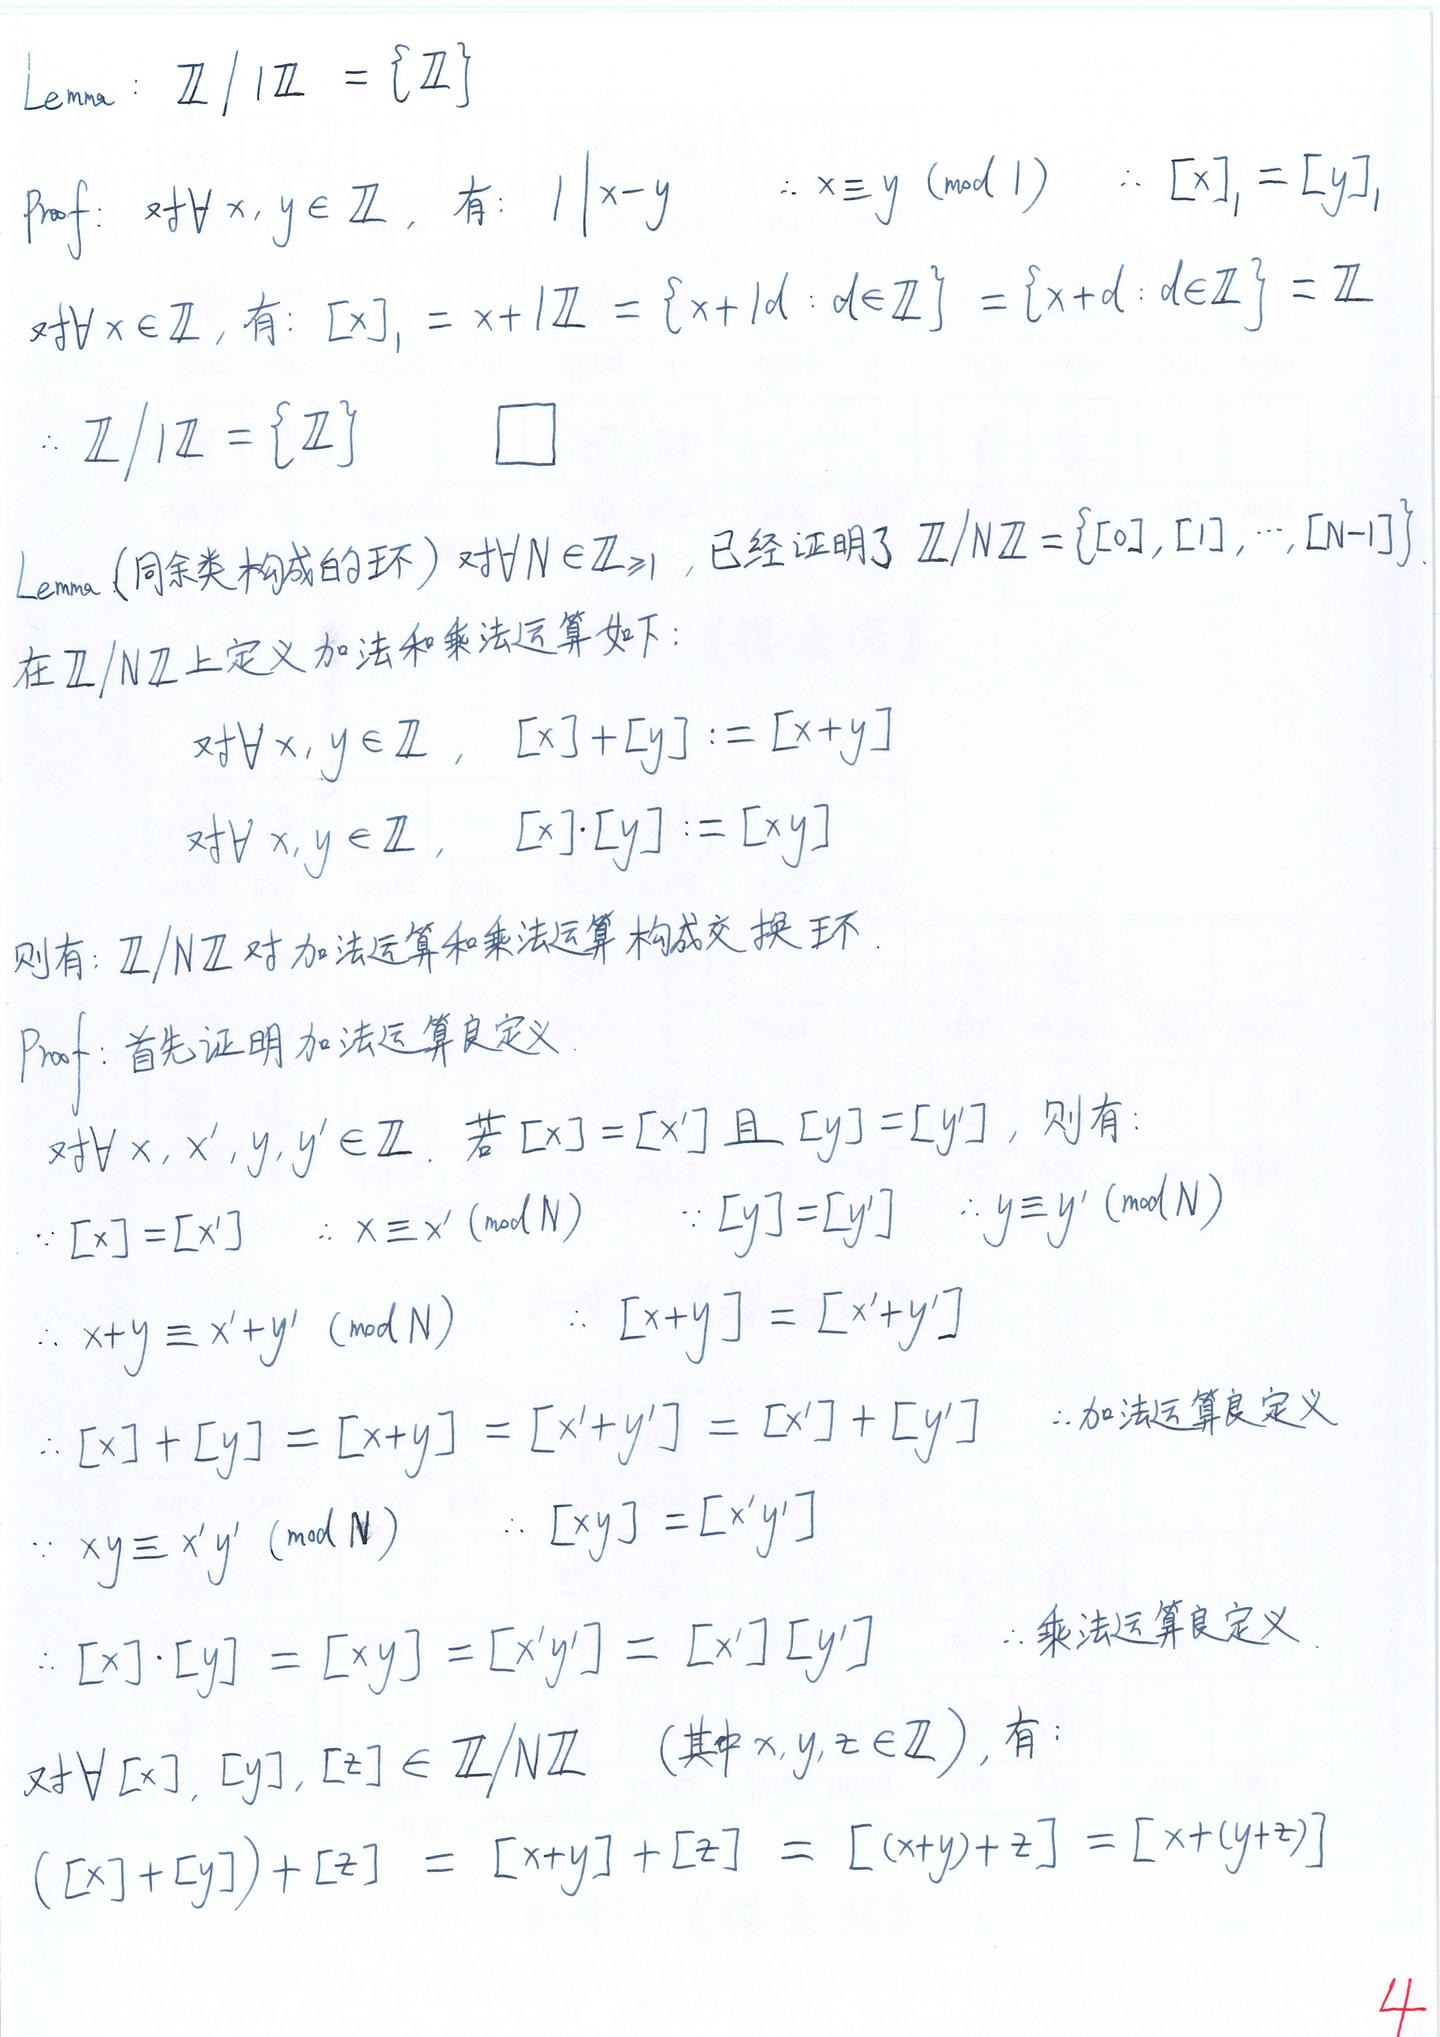 Lemma: ℤ/1ℤ = {ℤ}
Proof: 对∀x, y∈ℤ, 有: 1|x-y ∴ x≡y (mod 1) ∴ [x]₁ = [y]₁
对∀x∈ℤ, 有: [x]₁ = x+1ℤ = {x+1d : d∈ℤ} = {x+d : d∈ℤ} = ℤ
∴ ℤ/1ℤ = {ℤ} □
Lemma (同余类构成的环) 对∀N∈ℤ≥1, 已经证明了 ℤ/Nℤ = {[0], [1], ⋯, [N-1]}.
在ℤ/Nℤ上定义加法和乘法运算如下:
对∀x, y∈ℤ, [x]+[y] := [x+y]
对∀x, y∈ℤ, [x]·[y] := [xy]
则有: ℤ/Nℤ对加法运算和乘法运算构成交换环.
Proof: 首先证明加法运算良定义.
对∀x, x', y, y'∈ℤ. 若[x]=[x']且[y]=[y'], 则有:
∵ [x]=[x'] ∴ x≡x' (mod N) ∵ [y]=[y'] ∴ y≡y' (mod N)
∴ x+y≡x'+y' (mod N) ∴ [x+y] = [x'+y']
∴ [x]+[y] = [x+y] = [x'+y'] = [x']+[y'] ∴加法运算良定义
∵ xy≡x'y' (mod N) ∴ [xy] = [x'y']
∴ [x]·[y] = [xy] = [x'y'] = [x'][y'] ∴乘法运算良定义.
对∀[x], [y], [z]∈ℤ/Nℤ (其中x, y, z∈ℤ), 有:
([x]+[y])+[z] = [x+y]+[z] = [(x+y)+z] = [x+(y+z)]
4